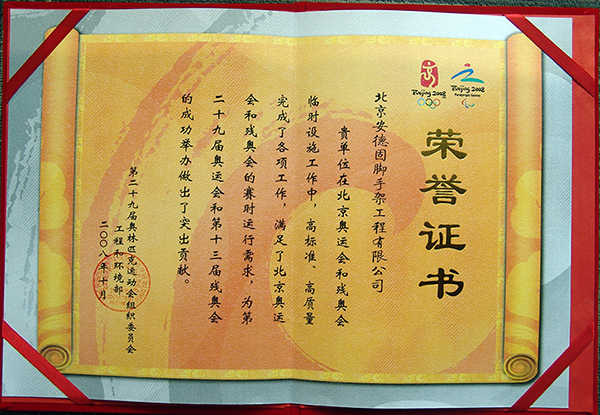 Beijing 2008
Beijing 2008
Paralympic Games
荣誉证书
北京安德固脚手架工程有限公司
贵单位在北京奥运会和残奥会
临时设施工作中，高标准、高质量
完成了各项工作，满足了北京奥运
会和残奥会的赛时运行需求，为第
二十九届奥运会和第十三届残奥会
的成功举办做出了突出贡献。
第二十九届奥林匹克运动会组织委员会
工程和环境部
二〇〇八年十月